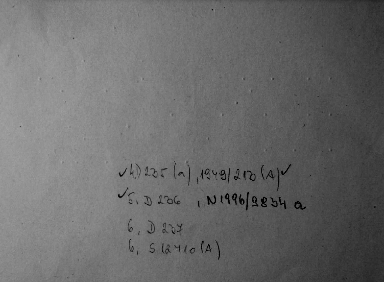 ✓4, D 235 (a), 1949/210 (A) ✓
✓5, D 236, N1996/9834 a
6, D 237
6, S 12410 (A)